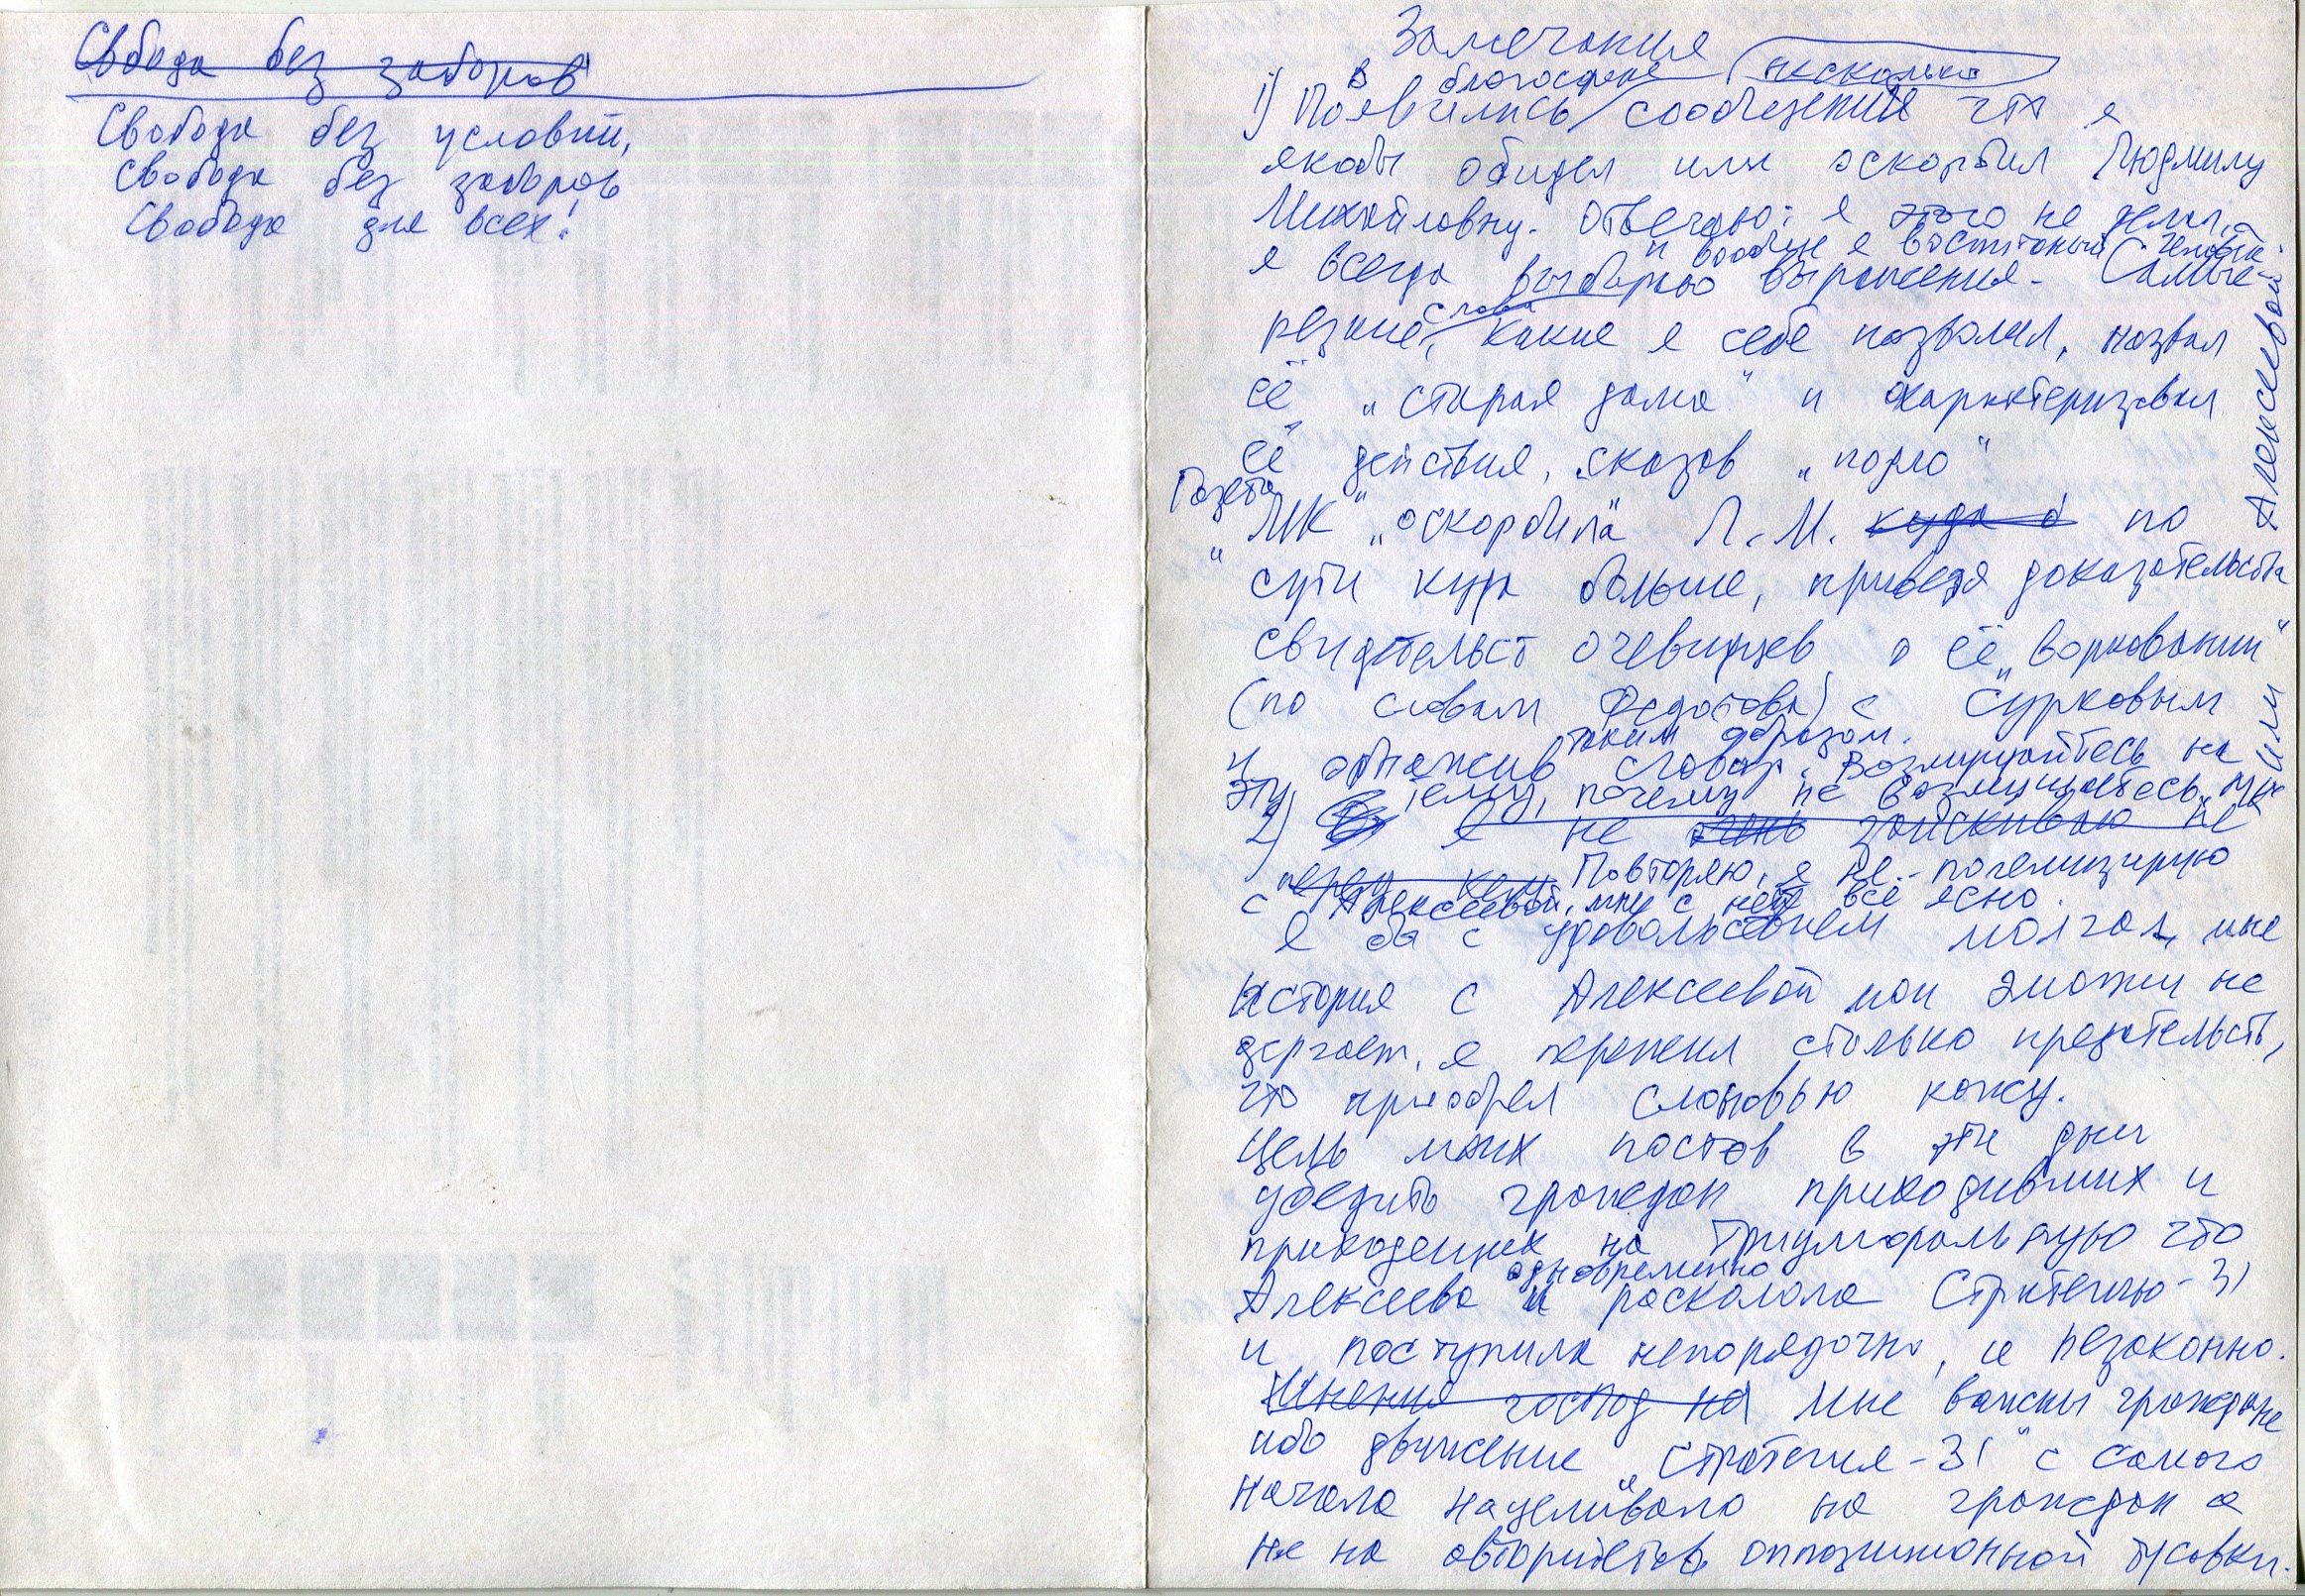 Свобода без заборов
Свобода без условий,
Свобода без заборов
Свобода для всех!
Замечания
в блогосфере несколько
1) Появились сообщения что я
якобы обидел или оскорбил Людмилу
Михайловну. Отвечаю: я этого не делал,
и вообще я воспитаный человек.
я всегда выбираю выражения. Самые
слова
резкие, какие я себе позволил, назвал
её „старая дама" и охарактеризовал
её действия, сказав „подло"
Газета
„МК" „оскорбила" Л.М. куда б по
сути куда больше, приведя доказательства
свидетельст очевидцев о её „ворковании"
(по словам Федотова) с Сурковым
таким образом.
и обнажив сговор. Возмущайтесь на
эту тему, почему не возмущаетесь
ими Алексеевой
2) я не заискиваю не
перед кем Повторяю, я не полемизирую
с Алексеевой, мне с ней всё ясно.
я бы с удовольствием молчал, мне
история с Алексеевой мои эмоции не
дергает, я пережил столько предательств,
что приобрел слоновью кожу.
Цель моих постов в эти дни
убедить граждан приходивших и
приходящих на Триумфальную что
одновременно
Алексеева и расколола Стратегию-31
и поступила непорядочно, и незаконно.
Мнения господ на Мне важны граждане
ибо движение „Стратегия-31" с самого
начала нацеливало на граждан а
не на авторитетов оппозиционной тусовки.